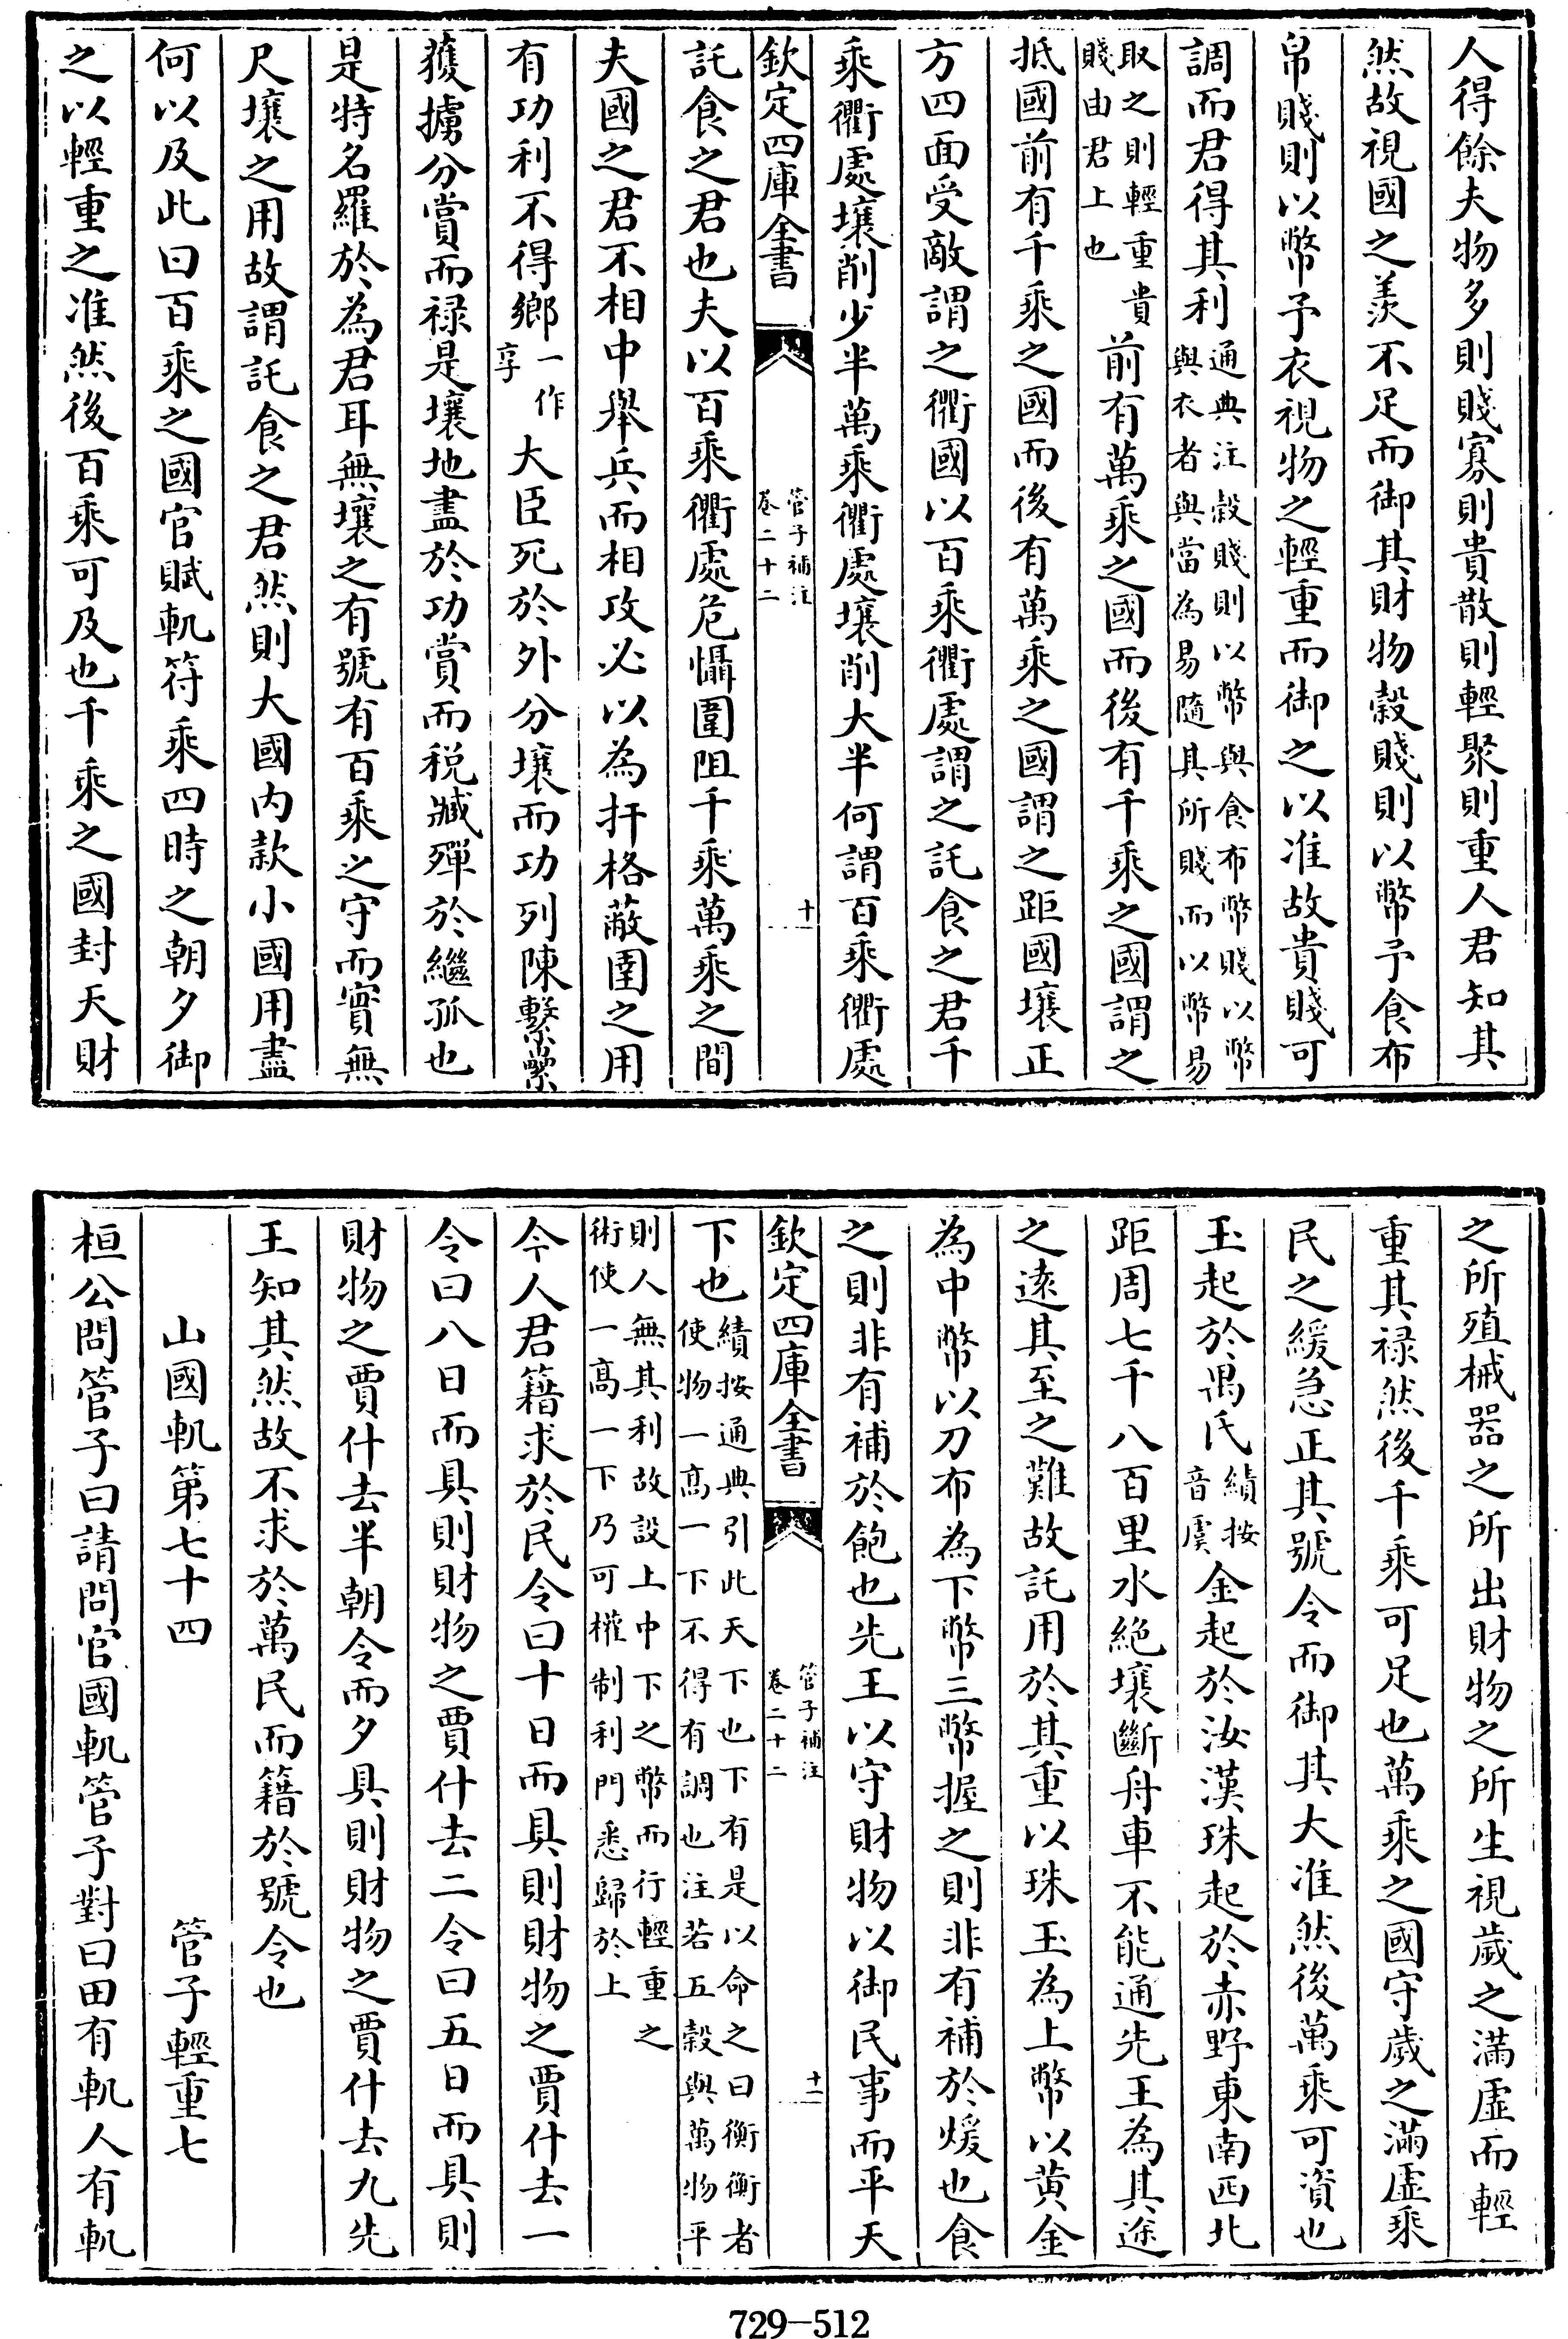 人得餘夫物多則賤寡則貴散則輕聚則重人君知其
然故視國之羨不足而御其財物穀賤則以幣予食布
帛賤則以幣予衣視物之輕重而御之以准故貴賤可
調而君得其利通典注穀賤則以幣與食布幣賤以幣
與衣者與當為易隨其所賤而以幣易
取之則輕重貴
賤由君上也前有萬乘之國而後有千乘之國謂之
抵國前有千乘之國而後有萬乘之國謂之距國壤正
方四面受敵謂之衢國以百乘衢處謂之託食之君千
乘衢處壤削少半萬乘衢處壤削大半何謂百乘衢處
欽定四庫全書
管子補注
卷二十二
十
託食之君也夫以百乘衢處危懾圍阻千乘萬乘之間
夫國之君不相中舉兵而相攻必以為扞格蔽圉之用
有功利不得鄉一作
享大臣死於外分壤而功列陳繫纍
獲擄分賞而禄是壤地盡於功賞而税臧殫於繼孤也
是特名羅於為君耳無壤之有號有百乘之守而實無
尺壤之用故謂託食之君然則大國内款小國用盡
何以及此曰百乘之國官賦軌符乘四時之朝夕御
之以輕重之准然後百乘可及也千乘之國封天財
之所殖械器之所出財物之所生視歲之滿虛而輕
重其禄然後千乘可足也萬乘之國守歲之滿虛乘
民之緩急正其號令而御其大准然後萬乘可資也
玉起於禺氏績按
音虞金起於汝漢珠起於赤野東南西北
距周七千八百里水絕壤斷舟車不能通先王為其途
之逺其至之難故託用於其重以珠玉為上幣以黄金
為中幣以刀布為下幣三幣握之則非有補於煖也食
之則非有補於飽也先王以守財物以御民事而平天
欽定四庫全書
管子補注
卷二十二
十一
下也績按通典引此天下也下有是以命之曰衡衡者
使物一髙一下不得有調也注若五穀與萬物平
則人無其利故設上中下之幣而行輕重之
術使一髙一下乃可權制利門悉歸於上
今人君籍求於民令曰十日而具則財物之賈什去一
令曰八日而具則財物之賈什去二令曰五日而具則
財物之賈什去半朝令而夕具則財物之賈什去九先
王知其然故不求於萬民而籍於號令也
山國軌第七十四 管子輕重七
桓公問管子曰請問官國軌管子對曰田有軌人有軌
729-512